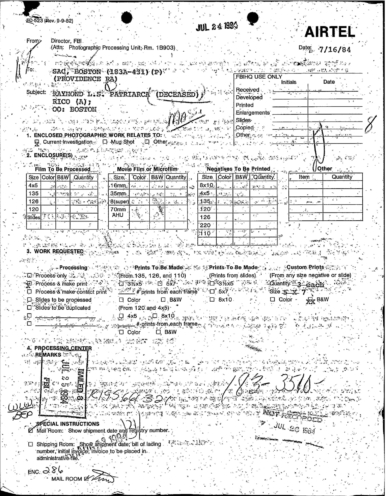 JUL 24 1984
AIRTEL
From: Director, FBI
(Attn: Photographic Processing Unit, Rm. 1B903)
Date: 7/16/84
SAC, BOSTON (183A-431) (P)
(PROVIDENCE RA)
Subject: RAYMOND L.S. PATRIARCA (DECEASED);
RICO (A);
OO: BOSTON
FBIHQ USE ONLY
Initials Date
Received
Developed
Printed
Enlargements
Slides
Copied
Other
8
1. ENCLOSED PHOTOGRAPHIC WORK RELATES TO:
Current Investigation Mug Shot Other
2. ENCLOSURE(S)
Film To Be Processed Movie Film or Microfilm Negatives To Be Printed Other
Size Color B&W Quantity Size Color B&W Quantity Size Color B&W Quantity Item Quantity
4x5 16mm 8x10
135 35mm 4x5
126 135
120 70mm 120
AHU 126
220
110
3. WORK REQUESTED
Processing Prints To Be Made Prints To Be Made Custom Prints
Process only (From 135, 126, and 110) (Prints from slides) (From any size negative or slide)
Process & make print Quantity 3 each
Process & make contact print prints from each frame 5x7 Size 5 x 7
Slides to be processed Color B&W 8x10 Color B&W
Slides to be duplicated (From 120 and 4x5)
4x5 8x10
prints from each frame
Color B&W
4. PROCESSING CENTER
REMARKS
183-3510-
JUL 26 1984
SPECIAL INSTRUCTIONS
Mail Room: Show shipment date and registry number.
Shipping Room: Show shipment date; bill of lading
number; initial invoice; invoice to be placed in
administrative file.
ENC. 286
MAIL ROOM